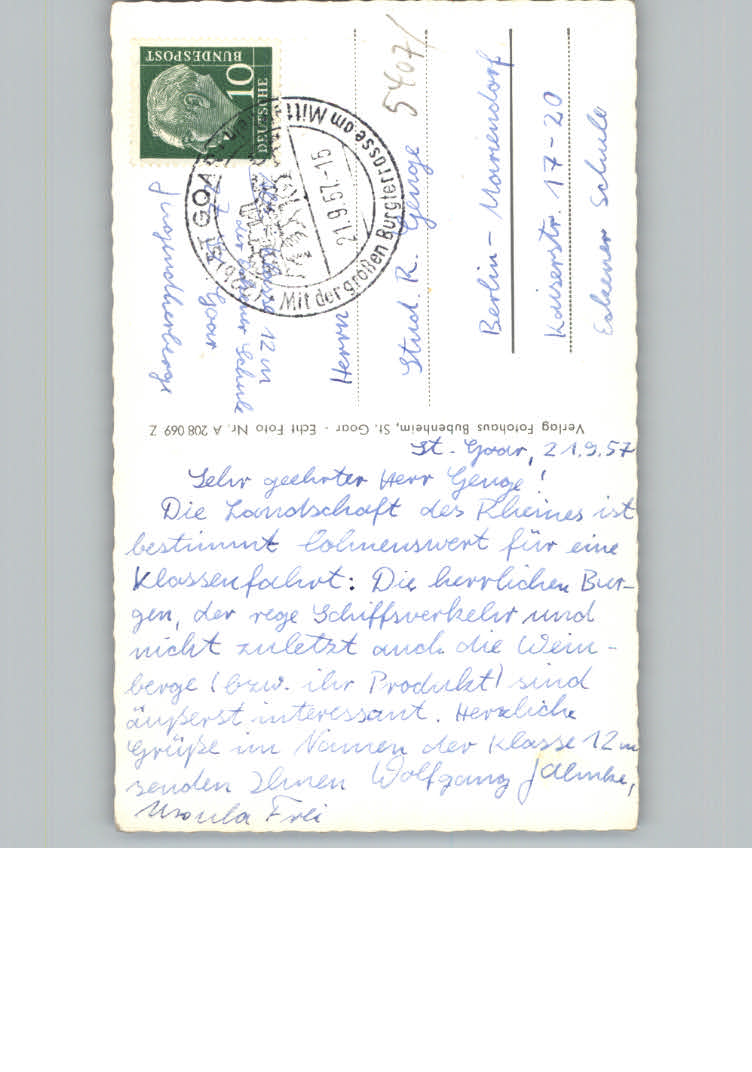 St. Goar, 21.9.57
Sehr geehrter Herr Genge!
Die Landschaft des Rheines ist
bestimmt lohnenswert für eine
Klassenfahrt: Die herrlichen Bur-
gen, der rege Schiffsverkehr und
nicht zuletzt auch die Wein-
berge (bzw. ihr Produkt) sind
äußerst interessant. Herzliche
Grüße im Namen der Klasse 12m
senden Ihnen Wolfgang
Ursula Frei
Verlag Fotohaus Bubenheim, St. Goar - Echt Foto Nr. A 208 069 Z
Klasse 12m
der Eckener Schule
z. Z. St. Goar
Jugendherberge
Herrn
Stud. R. Genge
Berlin - Mariendorf
Kaiserstr. 17-20
Eckener Schule
5407/
DEUTSCHE
BUNDESPOST
10
ST GOAR
21.9.57.-15
Mit der großen Burgterrasse am Mitt